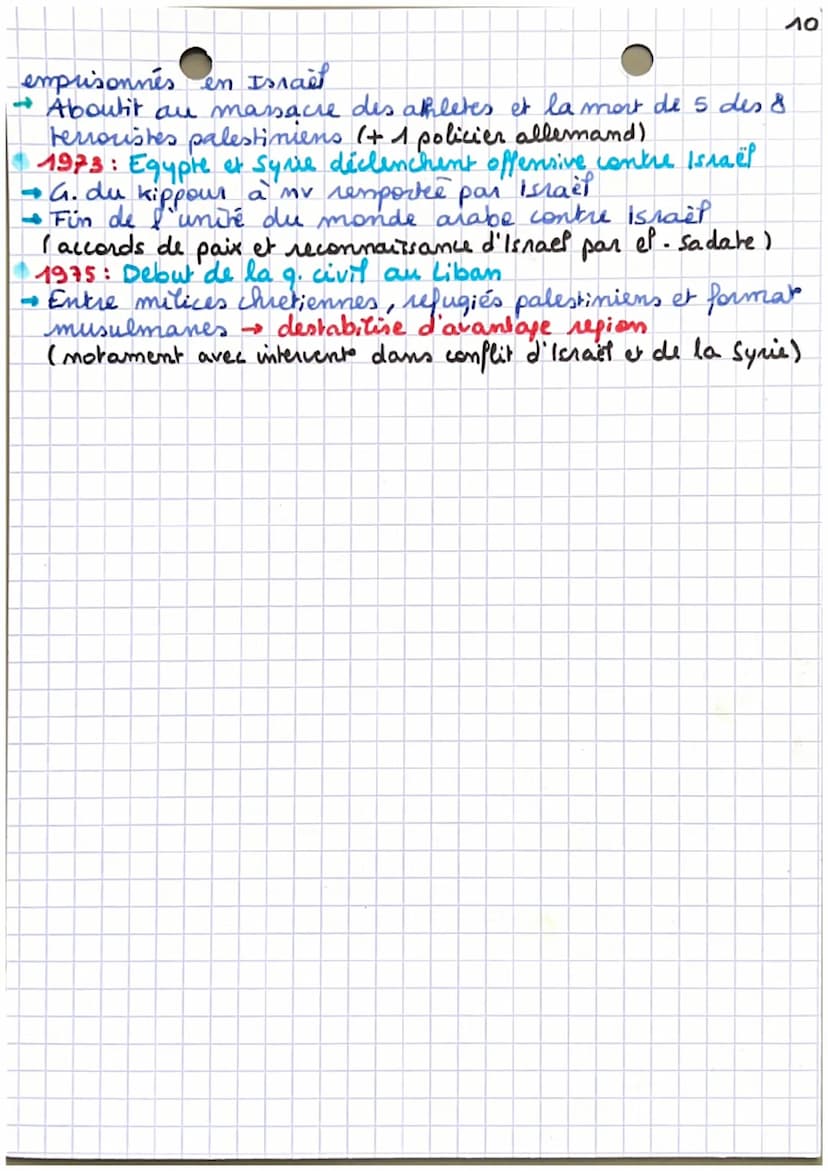 10
emprisonnés en Israël
→ Aboutit au massacre des athletes et la mort de 5 des 8
terroristes palestiniens (+ 1 policier allemand)
1973 : Egypte et Syrie déclenchent offensive contre Israël
→ G. du Kippour à nv remportée par Israël
→ Fin de l'unité du monde arabe contre Israël
(accords de paix et reconnaissance d'Israel par el-Sadate)
1975 : Debut de la g. civil au Liban
→ Entre milices chretiennes, refugiés palestiniens et format°
musulmanes → destabilise d'avantage region
(notament avec intervent° dans conflit d'Israël et de la Syrie)